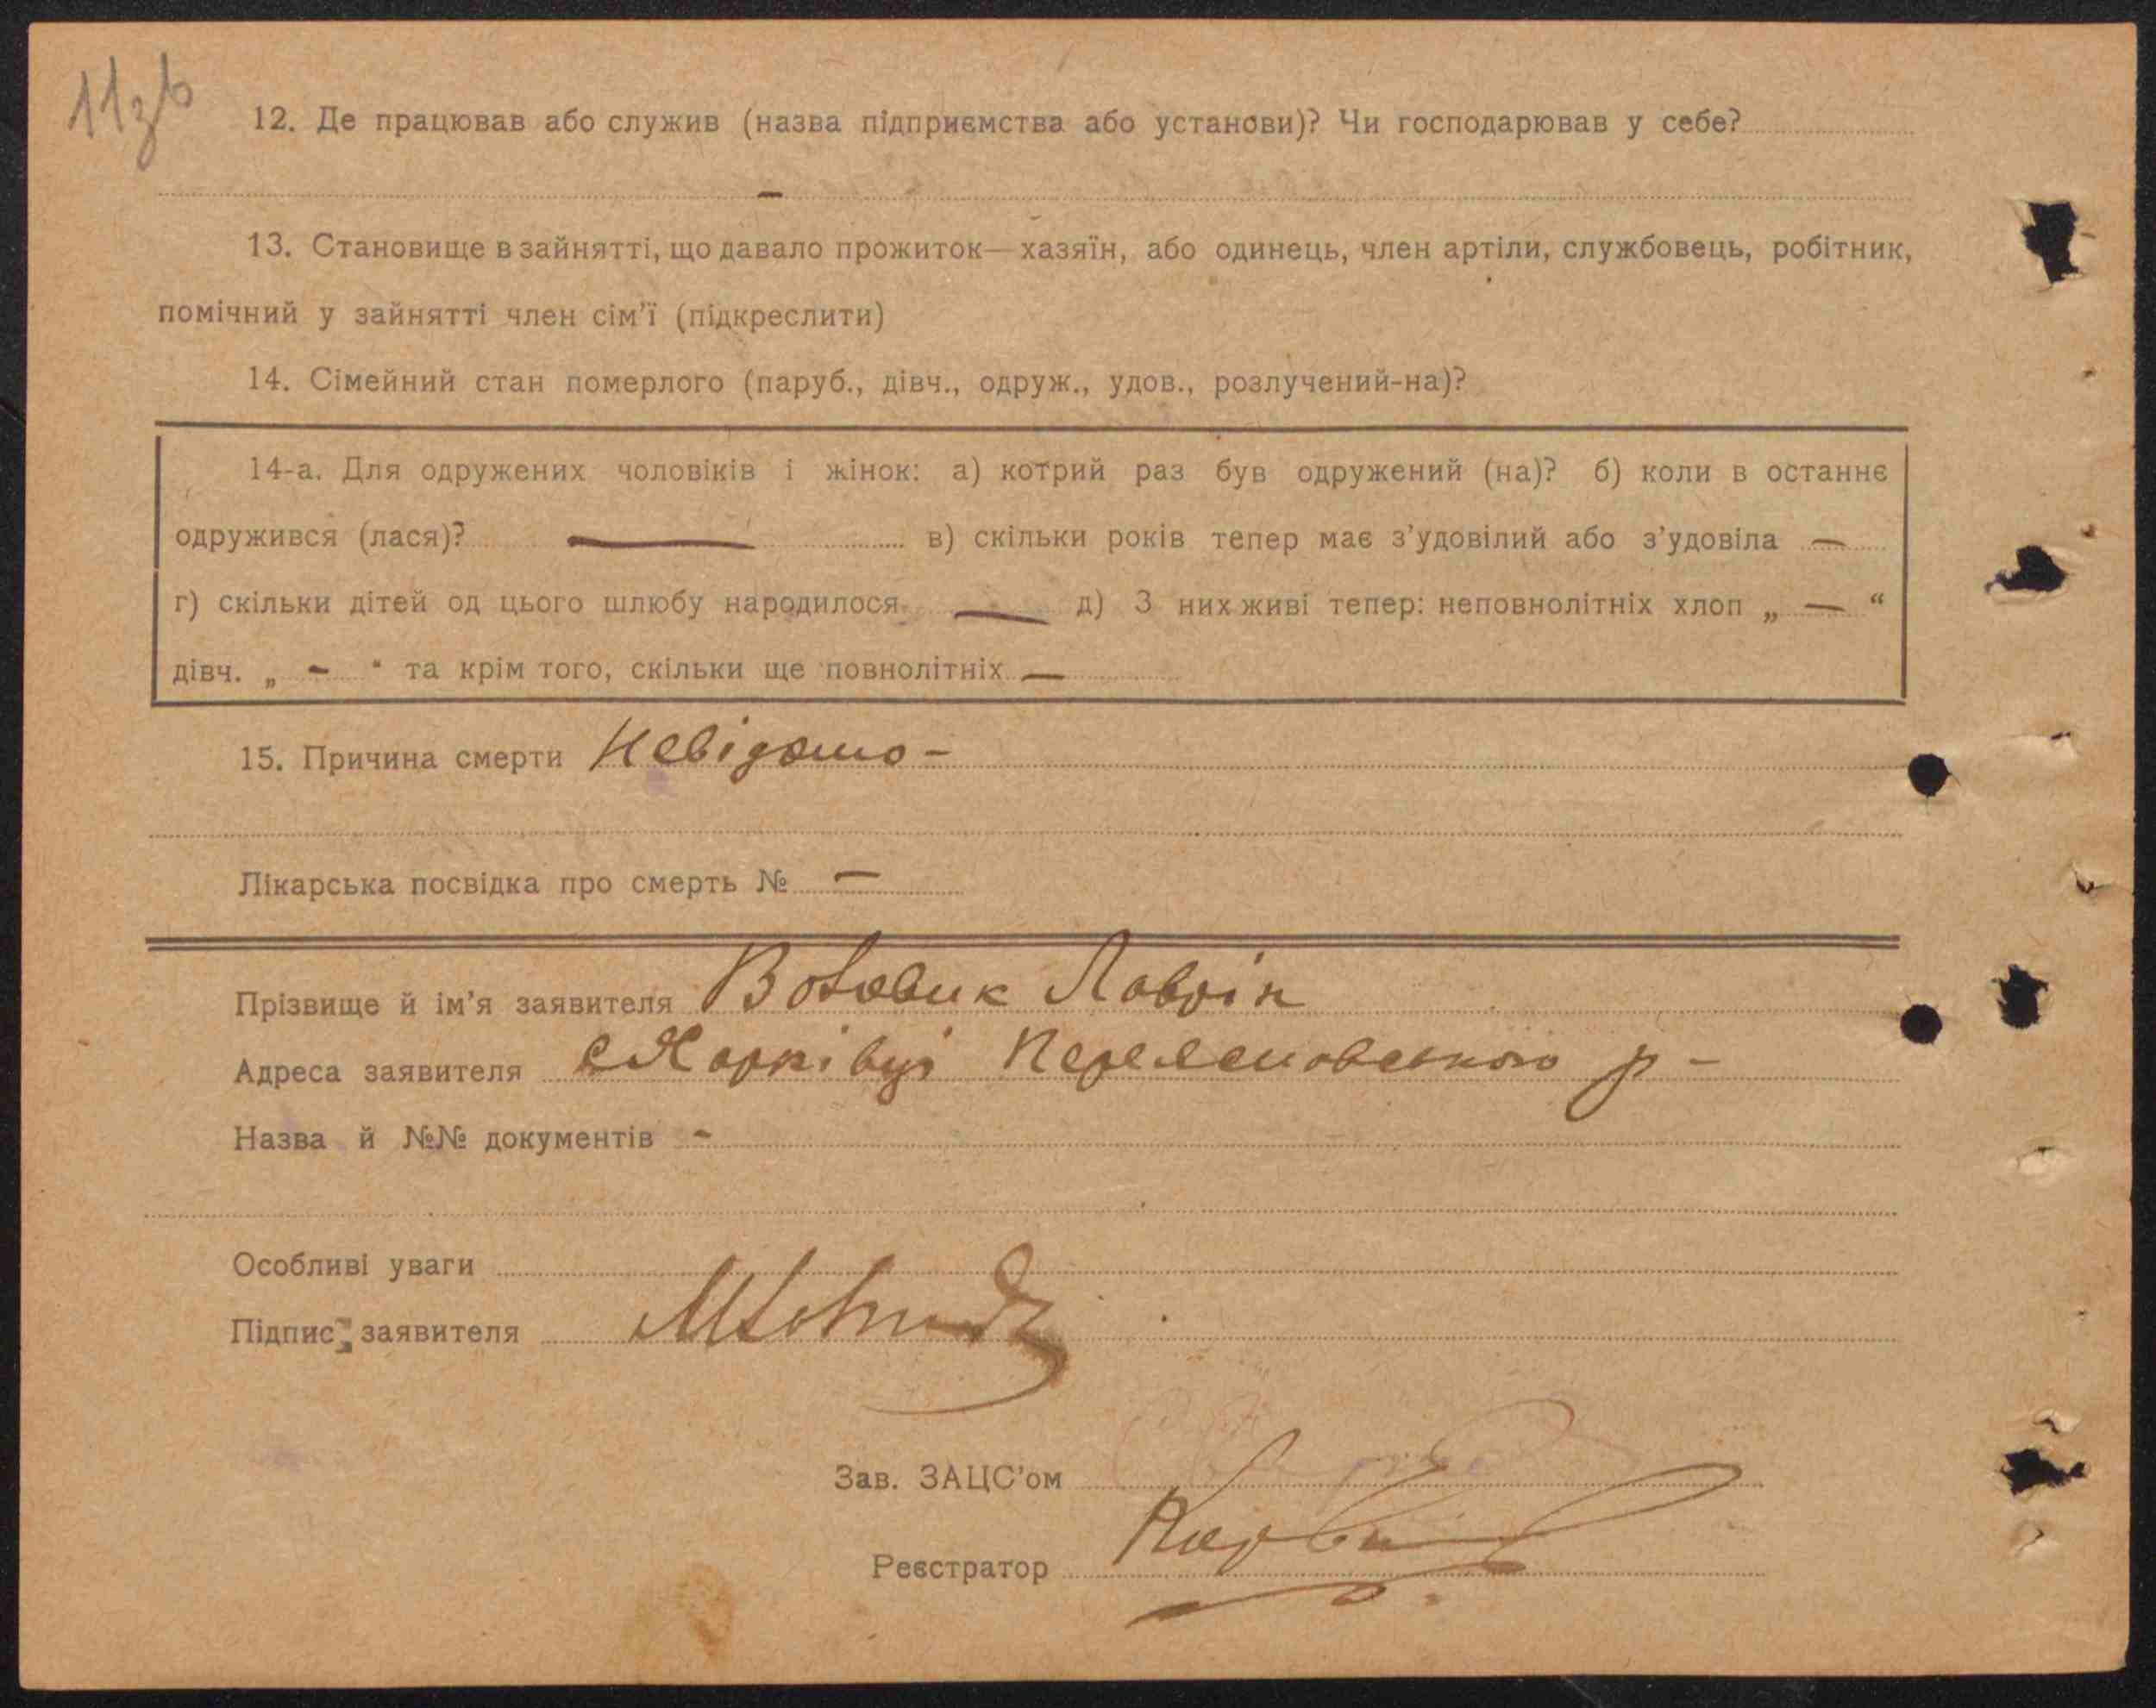 11зв
12. Де працював або служив (назва підприємства або установи)? Чи господарював у себе?
–
13. Становище в зайнятті, що давало прожиток—хазяїн, або одинець, член артіли, службовець, робітник,
помічний у зайнятті член сім’ї (підкреслити)
14. Сімейний стан померлого (паруб., дівч., одруж., удов., розлучений-на)?
14-а. Для одружених чоловіків і жінок: а) котрий раз був одружений (на)? б) коли в останнє
одружився (лася)? — в) скільки років тепер має з’удовілий або з’удовіла —
г) скільки дітей од цього шлюбу народилося — д) З них живі тепер: неповнолітніх хлоп „ — “
дівч. „ - “ та крім того, скільки ще повнолітніх —
15. Причина смерти Невідомо -
Лікарська посвідка про смерть № —
Прізвище й ім’я заявителя Вовк Лаврін
Адреса заявителя с Харківці р -
Назва й №№ документів -
Особливі уваги
Підпис заявителя
Зав. ЗАЦС’ом
Реєстратор